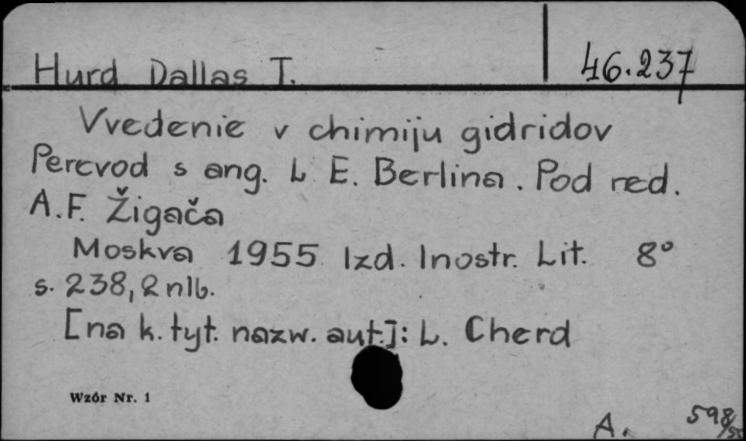 Hurd Dallas T. 46.237
Vvedenie v chimiju gidridov
Perevod s ang. L. E. Berlina. Pod red.
A.F. Žigača
Moskva 1955 Izd. Inostr. Lit. 8°
s. 238, 2 nlb.
[na k. tyt. nazw. aut.]: L. Cherd
Wzór Nr. 1
A. 598/55